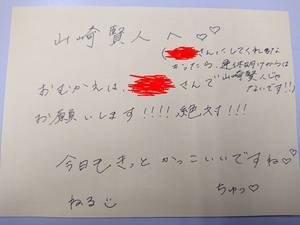 山﨑賢人へ♡♡
(さんにしてくれな
かったら、連休明けからは
山﨑賢人じゃ
ないです!!)
おむかえは、さんで
お願いします!!!!絶対!!!
今日もきっとかっこいいですね♡
ねる ちゅっ♡